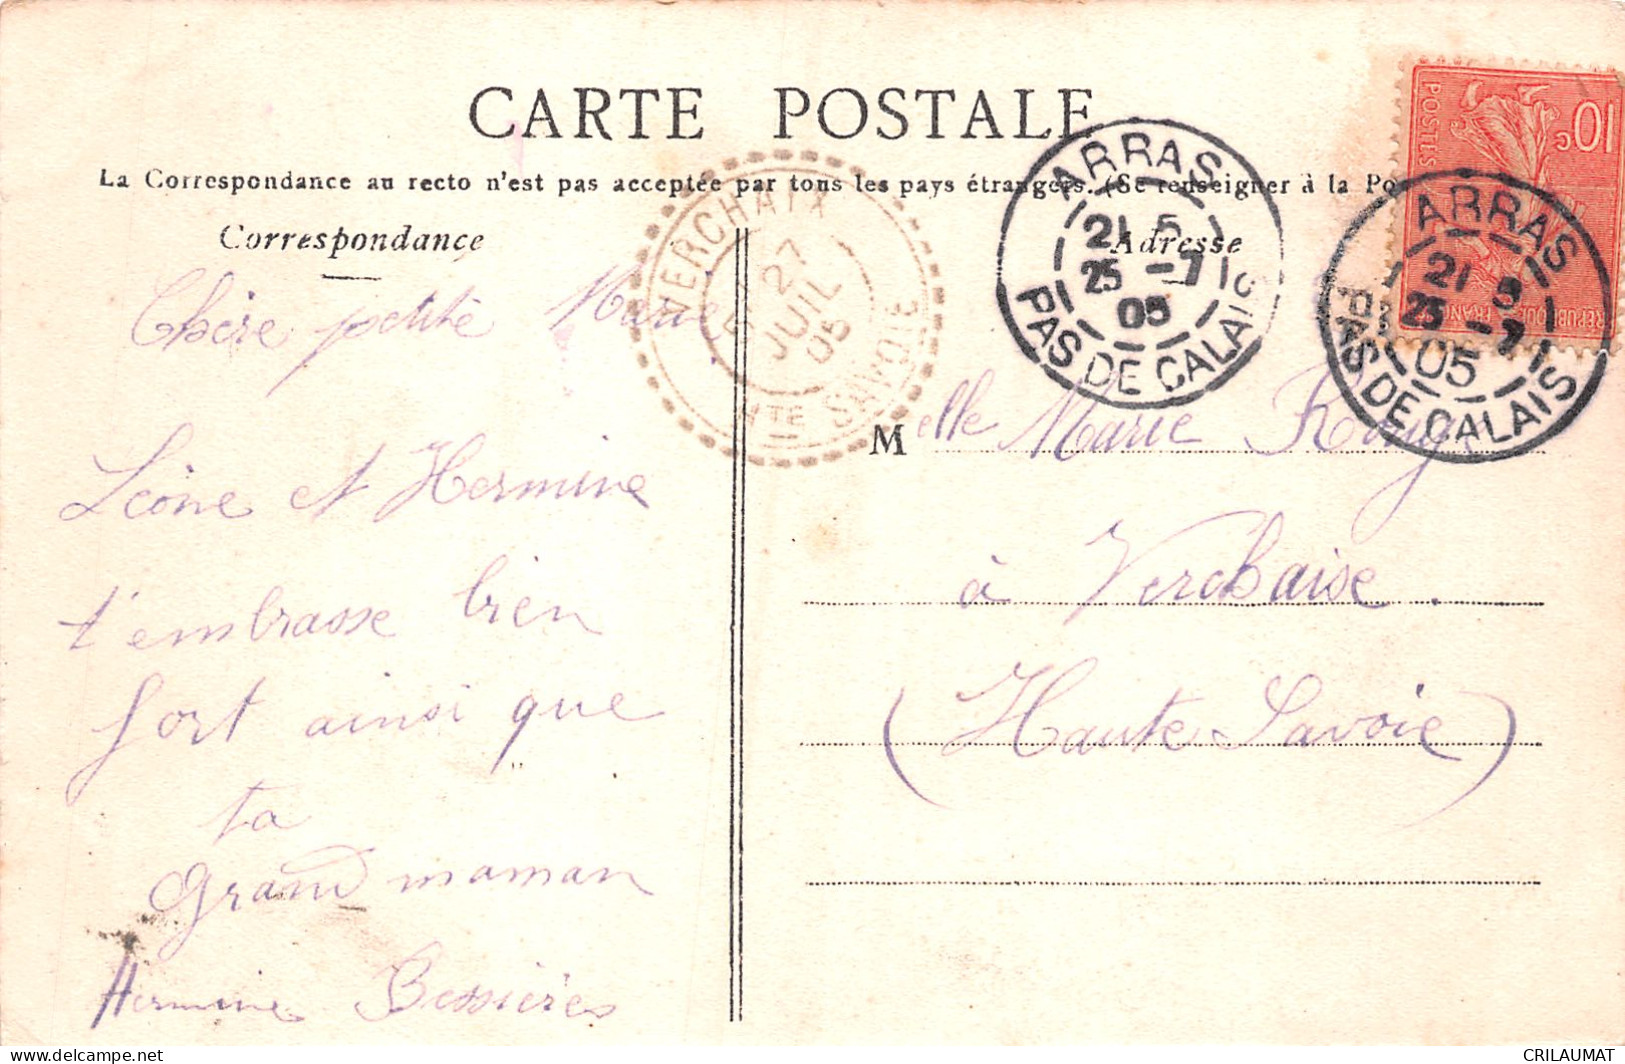 CARTE POSTALE
La Correspondance au recto n'est pas acceptée par tous les pays étrangers. (Se renseigner à la Po
Correspondance
Adresse
VERCHAIX
27
JUIL
05
HTE SAVOIE
ARRAS
21 5
25 -7
05
PAS DE CALAIS
ARRAS
21 5
25 -7
05
PAS DE CALAIS
10c
POSTES
Chère petite Marie
Léone et Hermine
t'embrasse bien
fort ainsi que
ta
Grand maman
Hermine Bessières
Melle Marie
à Verchaise.
(Haute Savoie)
CRILAUMAT